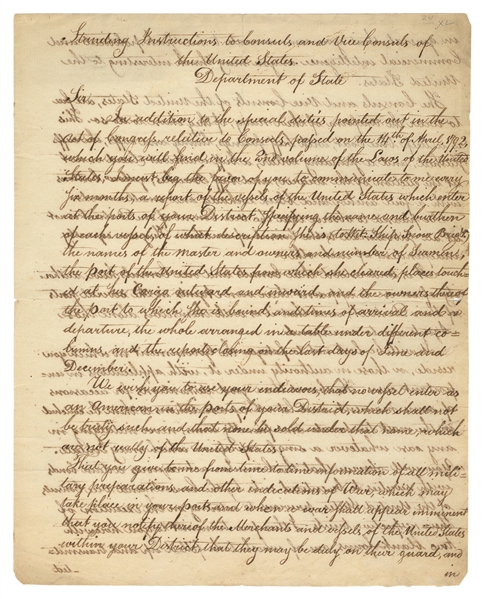 Standing Instructions to Consuls and Vice Consuls of
the United States.
Department of State
Sir
In addition to the special duties pointed out in the
Act of Congress, relative to Consuls, passed on the 14th of April 1792
which you will find in the volume of the Laws of the United
States, I must beg the favor of you to communicate to me every
six months, a report of the vessels of the United States which enter
at the ports of your District, specifying the name and burthen
of each vessel, of what description she is, to wit, Ship, Snow, Brig &c
the names of the Master and owners and number of Seamen,
the port of the United States from which she cleared, places touch-
ed at, her Cargo outward and inward, and the owners thereof
the port to which she is bound and times of arrival and
departure, the whole arranged in a table under different co-
lumns, and the reports closing on the last days of June and
December.
We wish you to use your endeavors, that no vessel enter as
an American in the ports of your District, which shall not
be truly such and that none be sold under that name, which
are not really of the United States
That you give to me from time to time information of all mili-
tary preparations, and other indications of War, which may
take place in your ports and when a war shall appear imminent
that you notify thereof the Merchants and vessels of the United States
within your District that they may be duly on their guard, and
in